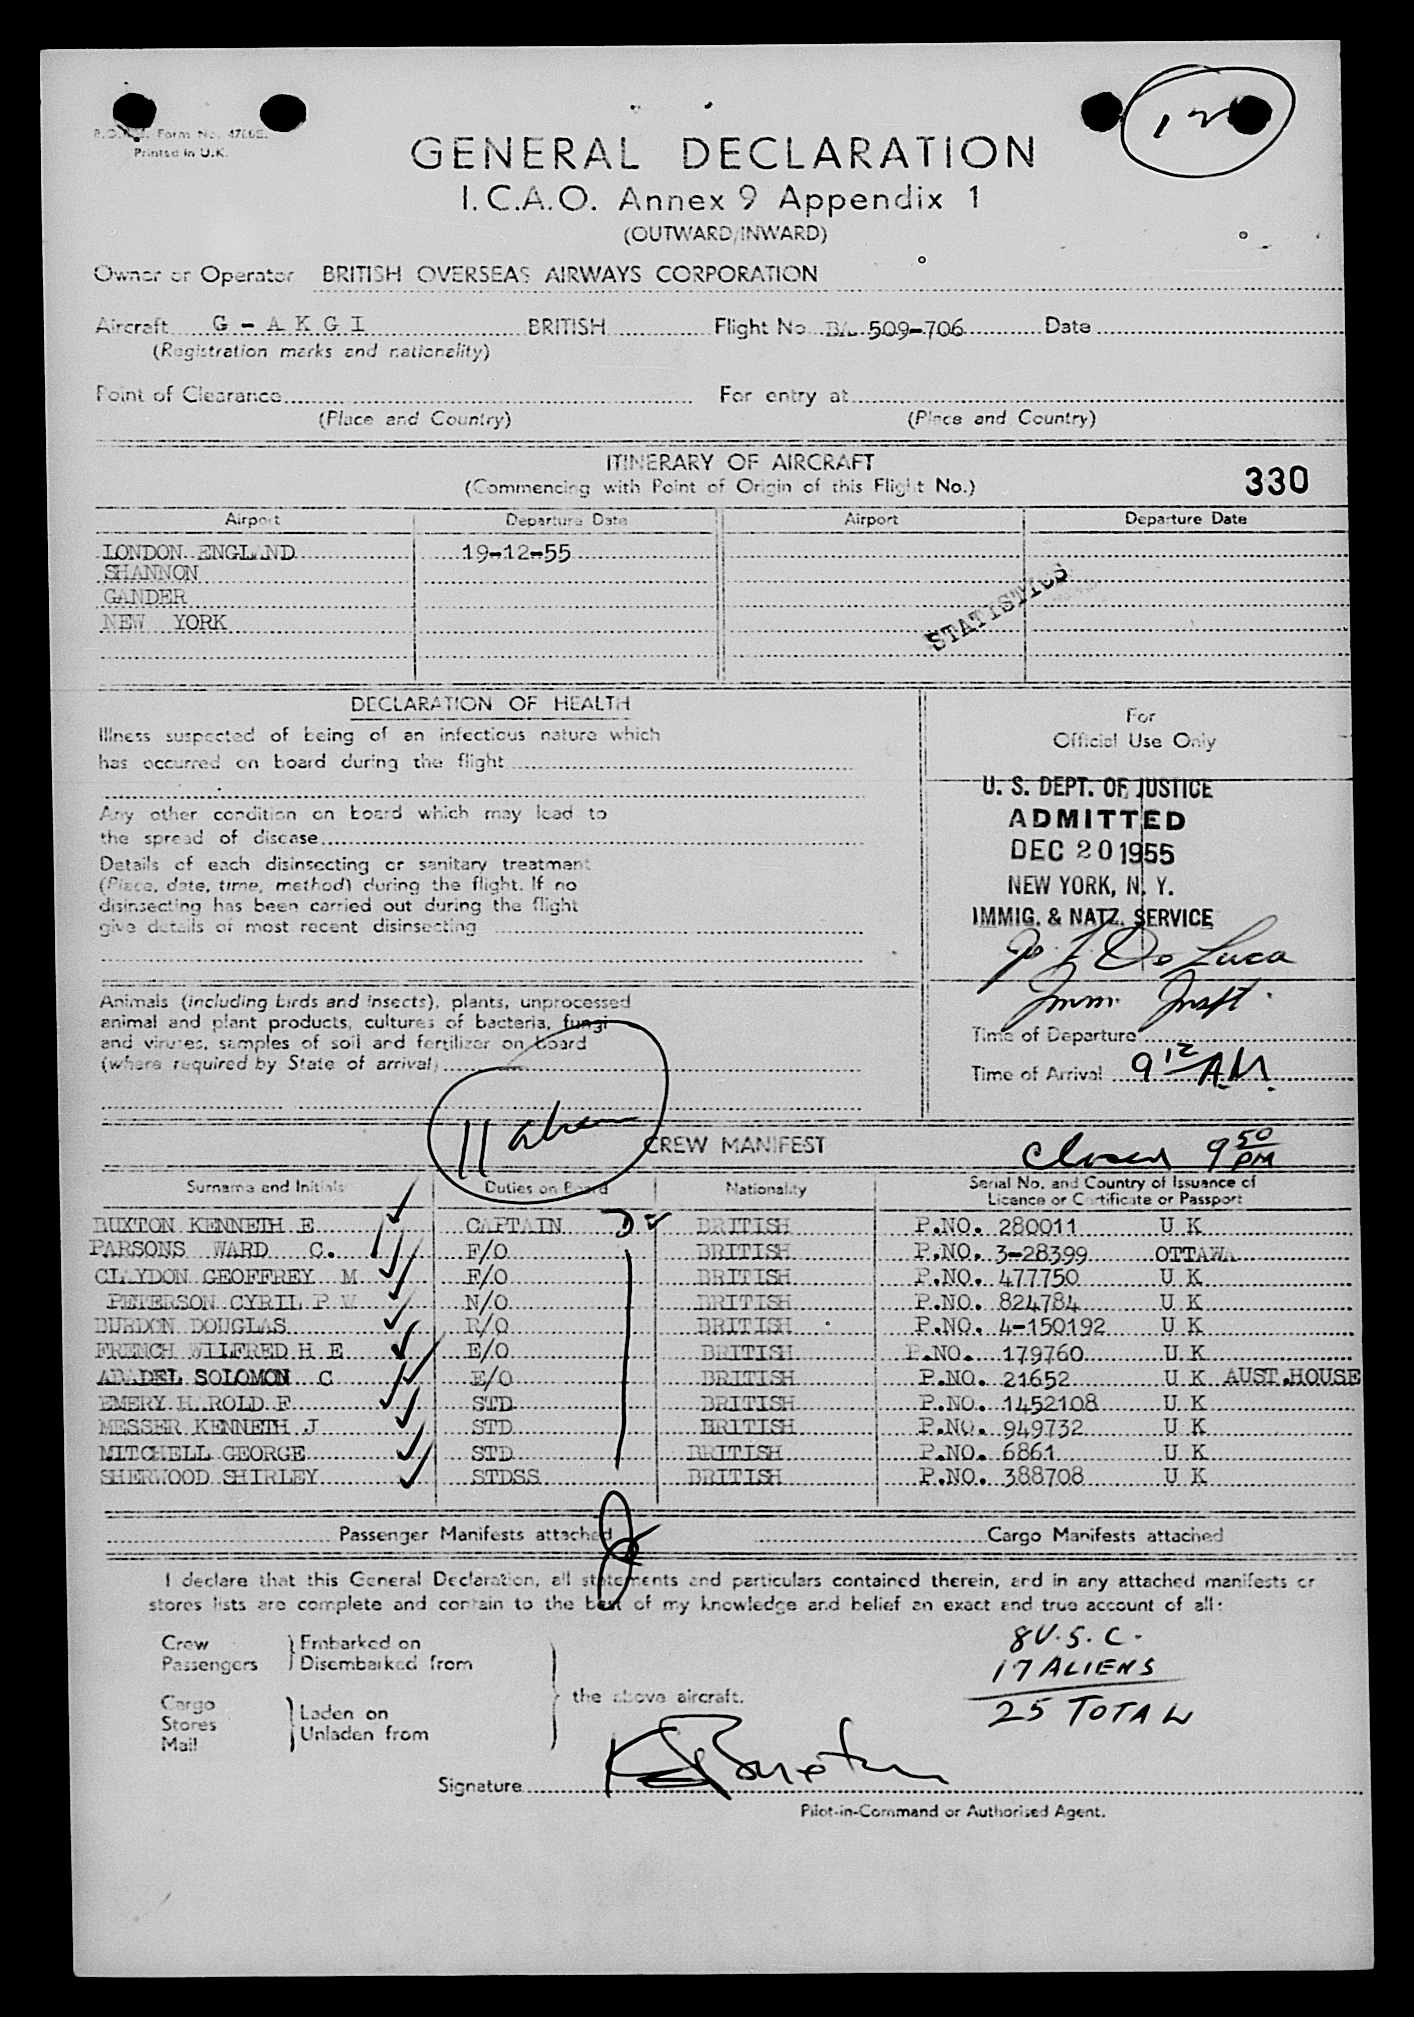 12
Form No.
Printed in U.K.
GENERAL DECLARATION
I.C.A.O. Annex 9 Appendix 1
(OUTWARD/INWARD)
Owner or Operator BRITISH OVERSEAS AIRWAYS CORPORATION
Aircraft G - A K G I BRITISH Flight No. BA 509-706 Date
(Registration marks and nationality)
Point of Clearance For entry at
(Place and Country) (Place and Country)
ITINERARY OF AIRCRAFT
(Commencing with Point of Origin of this Flight No.) 330
Airport Departure Date Airport Departure Date
LONDON ENGLAND 19-12-55
SHANNON
GANDER
NEW YORK
STATISTICS
DECLARATION OF HEALTH
Illness suspected of being of an infectious nature which
has occurred on board during the flight
Any other condition on board which may lead to
the spread of disease
Details of each disinsecting or sanitary treatment
(Place, date, time, method) during the flight. If no
disinsecting has been carried out during the flight
give details of most recent disinsecting
Animals (including birds and insects), plants, unprocessed
animal and plant products, cultures of bacteria, fungi
and viruses, samples of soil and fertilizer on board
(where required by State of arrival)
For
Official Use Only
U. S. DEPT. OF JUSTICE
ADMITTED
DEC 20 1955
NEW YORK, N. Y.
IMMIG. & NATZ. SERVICE
De Luca
Imm. Inspt.
Time of Departure
Time of Arrival 9 12 A.M.
11 aliens
CREW MANIFEST
Closed 9 50 PM
Surname and Initials Duties on Board Nationality Serial No. and Country of Issuance of
Licence or Certificate or Passport
BUXTON KENNETH E CAPTAIN D BRITISH P.NO. 280011 U K
PARSONS WARD C. F/O BRITISH P.NO. 3-28399 OTTAWA
CLAYDON GEOFFREY M F/O BRITISH P.NO. 477750 U K
PETERSON CYRIL P W N/O BRITISH P.NO. 824784 U K
BURDON DOUGLAS R/O BRITISH P.NO. 4-150192 U K
FRENCH WILFRED H E E/O BRITISH P.NO. 179760 U K
SOLOMON C E/O BRITISH P.NO. 21652 U K AUST.HOUSE
EMERY HAROLD F STD BRITISH P.NO. 1452108 U K
MESSER KENNETH J STD BRITISH P.NO. 949732 U K
MITCHELL GEORGE STD BRITISH P.NO. 6861 U K
SHERWOOD SHIRLEY STDSS BRITISH P.NO. 388708 U K
Passenger Manifests attached Cargo Manifests attached
I declare that this General Declaration, all statements and particulars contained therein, and in any attached manifests or
stores lists are complete and contain to the best of my knowledge and belief an exact and true account of all:
Crew Embarked on
Passengers Disembarked from
Cargo
Stores Laden on
Mail Unladen from
the above aircraft.
8 U.S.C.
17 ALIENS
25 TOTAL
Signature K E Buxton
Pilot-in-Command or Authorised Agent.